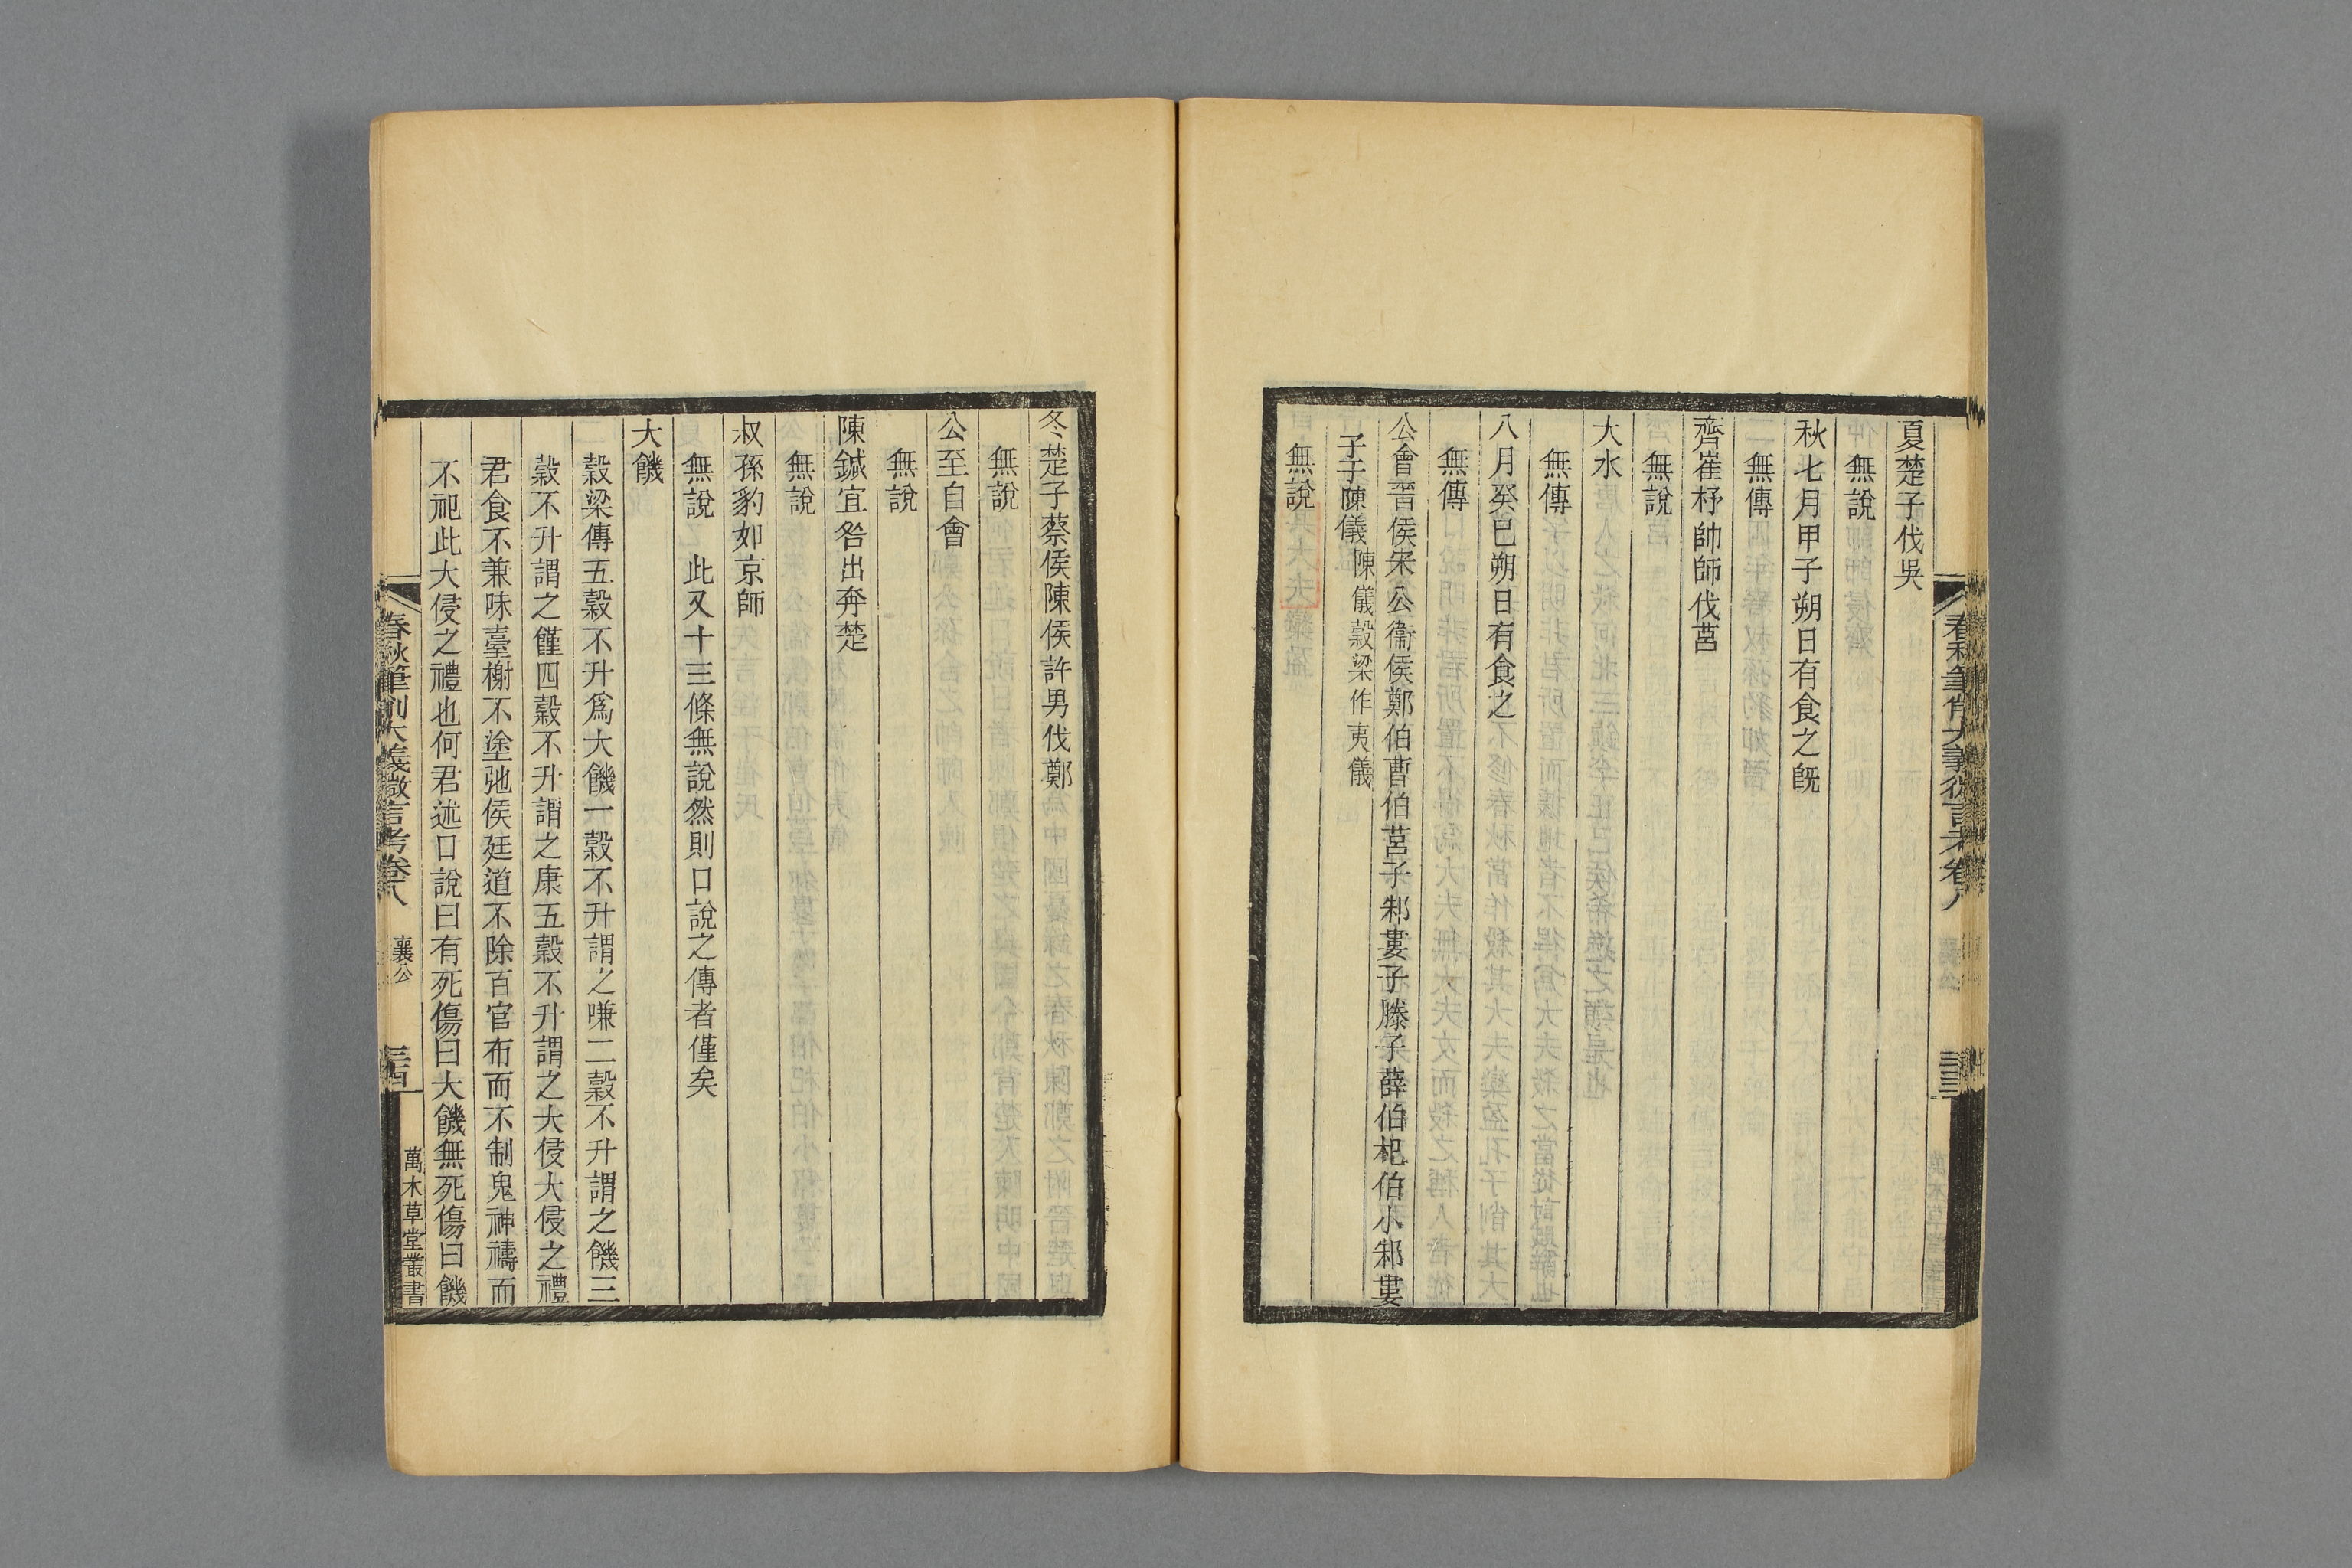 夏楚子伐吳
無說
秋七月甲子朔日有食之旣
無傳
齊崔杼帥師伐莒
無說
大水
無傳
八月癸巳朔日有食之
無傳
公會晉侯宋公衞侯鄭伯曹伯莒子邾婁子滕子薛伯杞伯小邾婁
子于陳儀陳儀穀梁作夷儀
無說
春秋筆削大義微言考卷八
冬楚子蔡侯陳侯許男伐鄭
無說
公至自會
無說
陳鍼宜咎出奔楚
無說
叔孫豹如京師
無說　此又十三條無說然則口說之傳者僅矣
大饑
穀梁傳五穀不升爲大饑一穀不升謂之嗛二穀不升謂之饑三
穀不升謂之饉四穀不升謂之康五穀不升謂之大侵大侵之禮
君食不兼味臺榭不塗弛侯廷道不除百官布而不制鬼神禱而
不祀此大侵之禮也何君述口說曰有死傷曰大饑無死傷曰饑
春秋筆削大義微言考卷八　襄公　三四　萬木草堂叢書